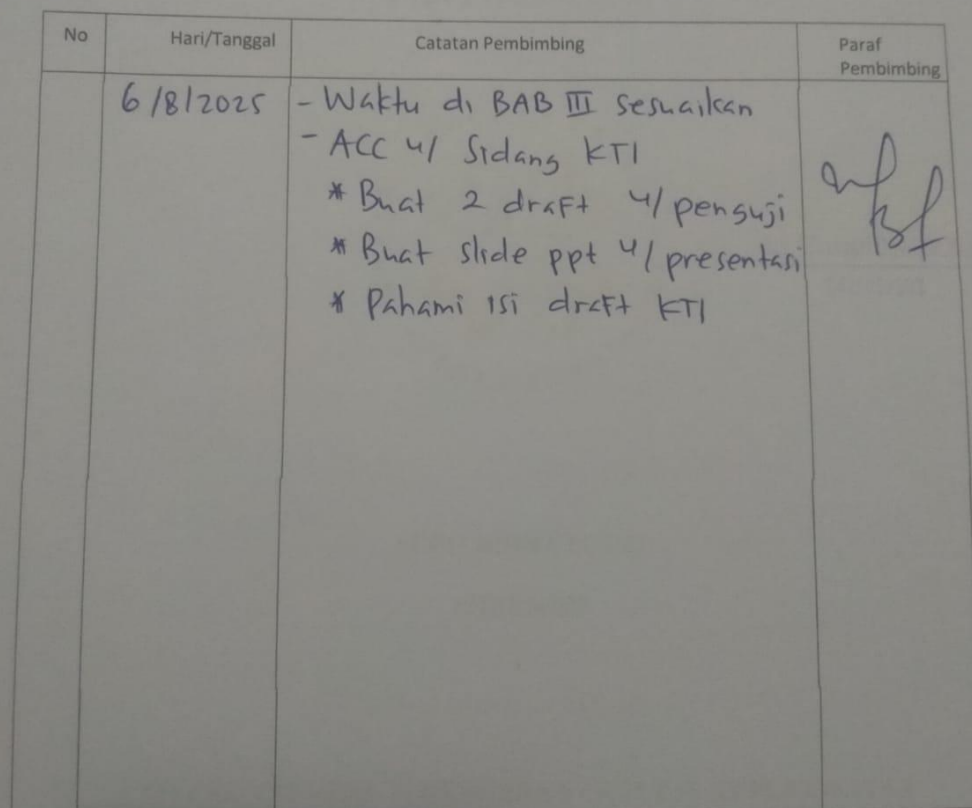 No Hari/Tanggal Catatan Pembimbing Paraf
Pembimbing
6/8/2025 - Waktu di BAB III sesuaikan
- ACC u/ Sidang KTI
* Buat 2 draft u/ penguji
* Buat slide ppt u/ presentasi
* Pahami isi draft KTI